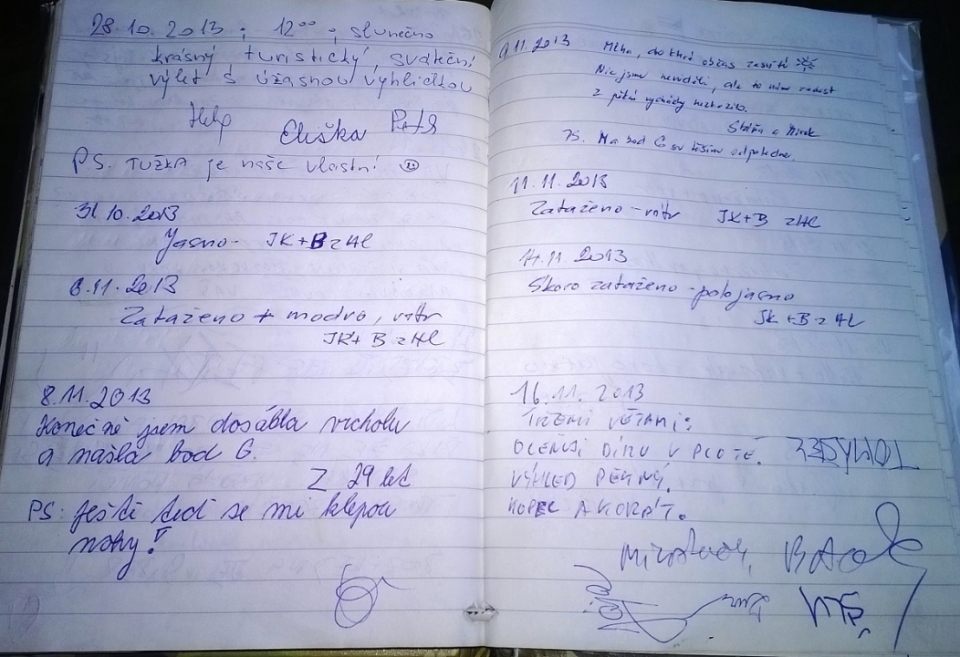 28.10.2013 ; 12⁰⁰ ; slunečno
krásný turistický, sváteční
výlet s úžasnou vyhlídkou
Eliška Petr
PS. TUŽKA je naše vlastní ☺
31.10.2013
Jasno - JK+B z HL
6.11.2013
Zataženo + modro, vítr
JK+B z HL
8.11.2013
Konečně jsem dosáhla vrcholu
a našla bod G.
Z 29 let
PS: Ještě teď se mi klepou
nohy!
9.11.2013 Mlha, do které občas zasvítí
Nic jsme neviděli, ale to nám radost
z pěkné vycházky nezkazilo.
PS. Na bod G se těšíme odpoledne.
11.11.2013
Zataženo - vítr JK+B z HL
14.11.2013
Skoro zataženo - polojasno
JK+B z HL
16.11.2013
TŘEMI VĚTAMI:
OCEŇUJI DÍRU V PLOTĚ.
VÝHLED PĚKNÝ.
KOPEC AKORÁT.